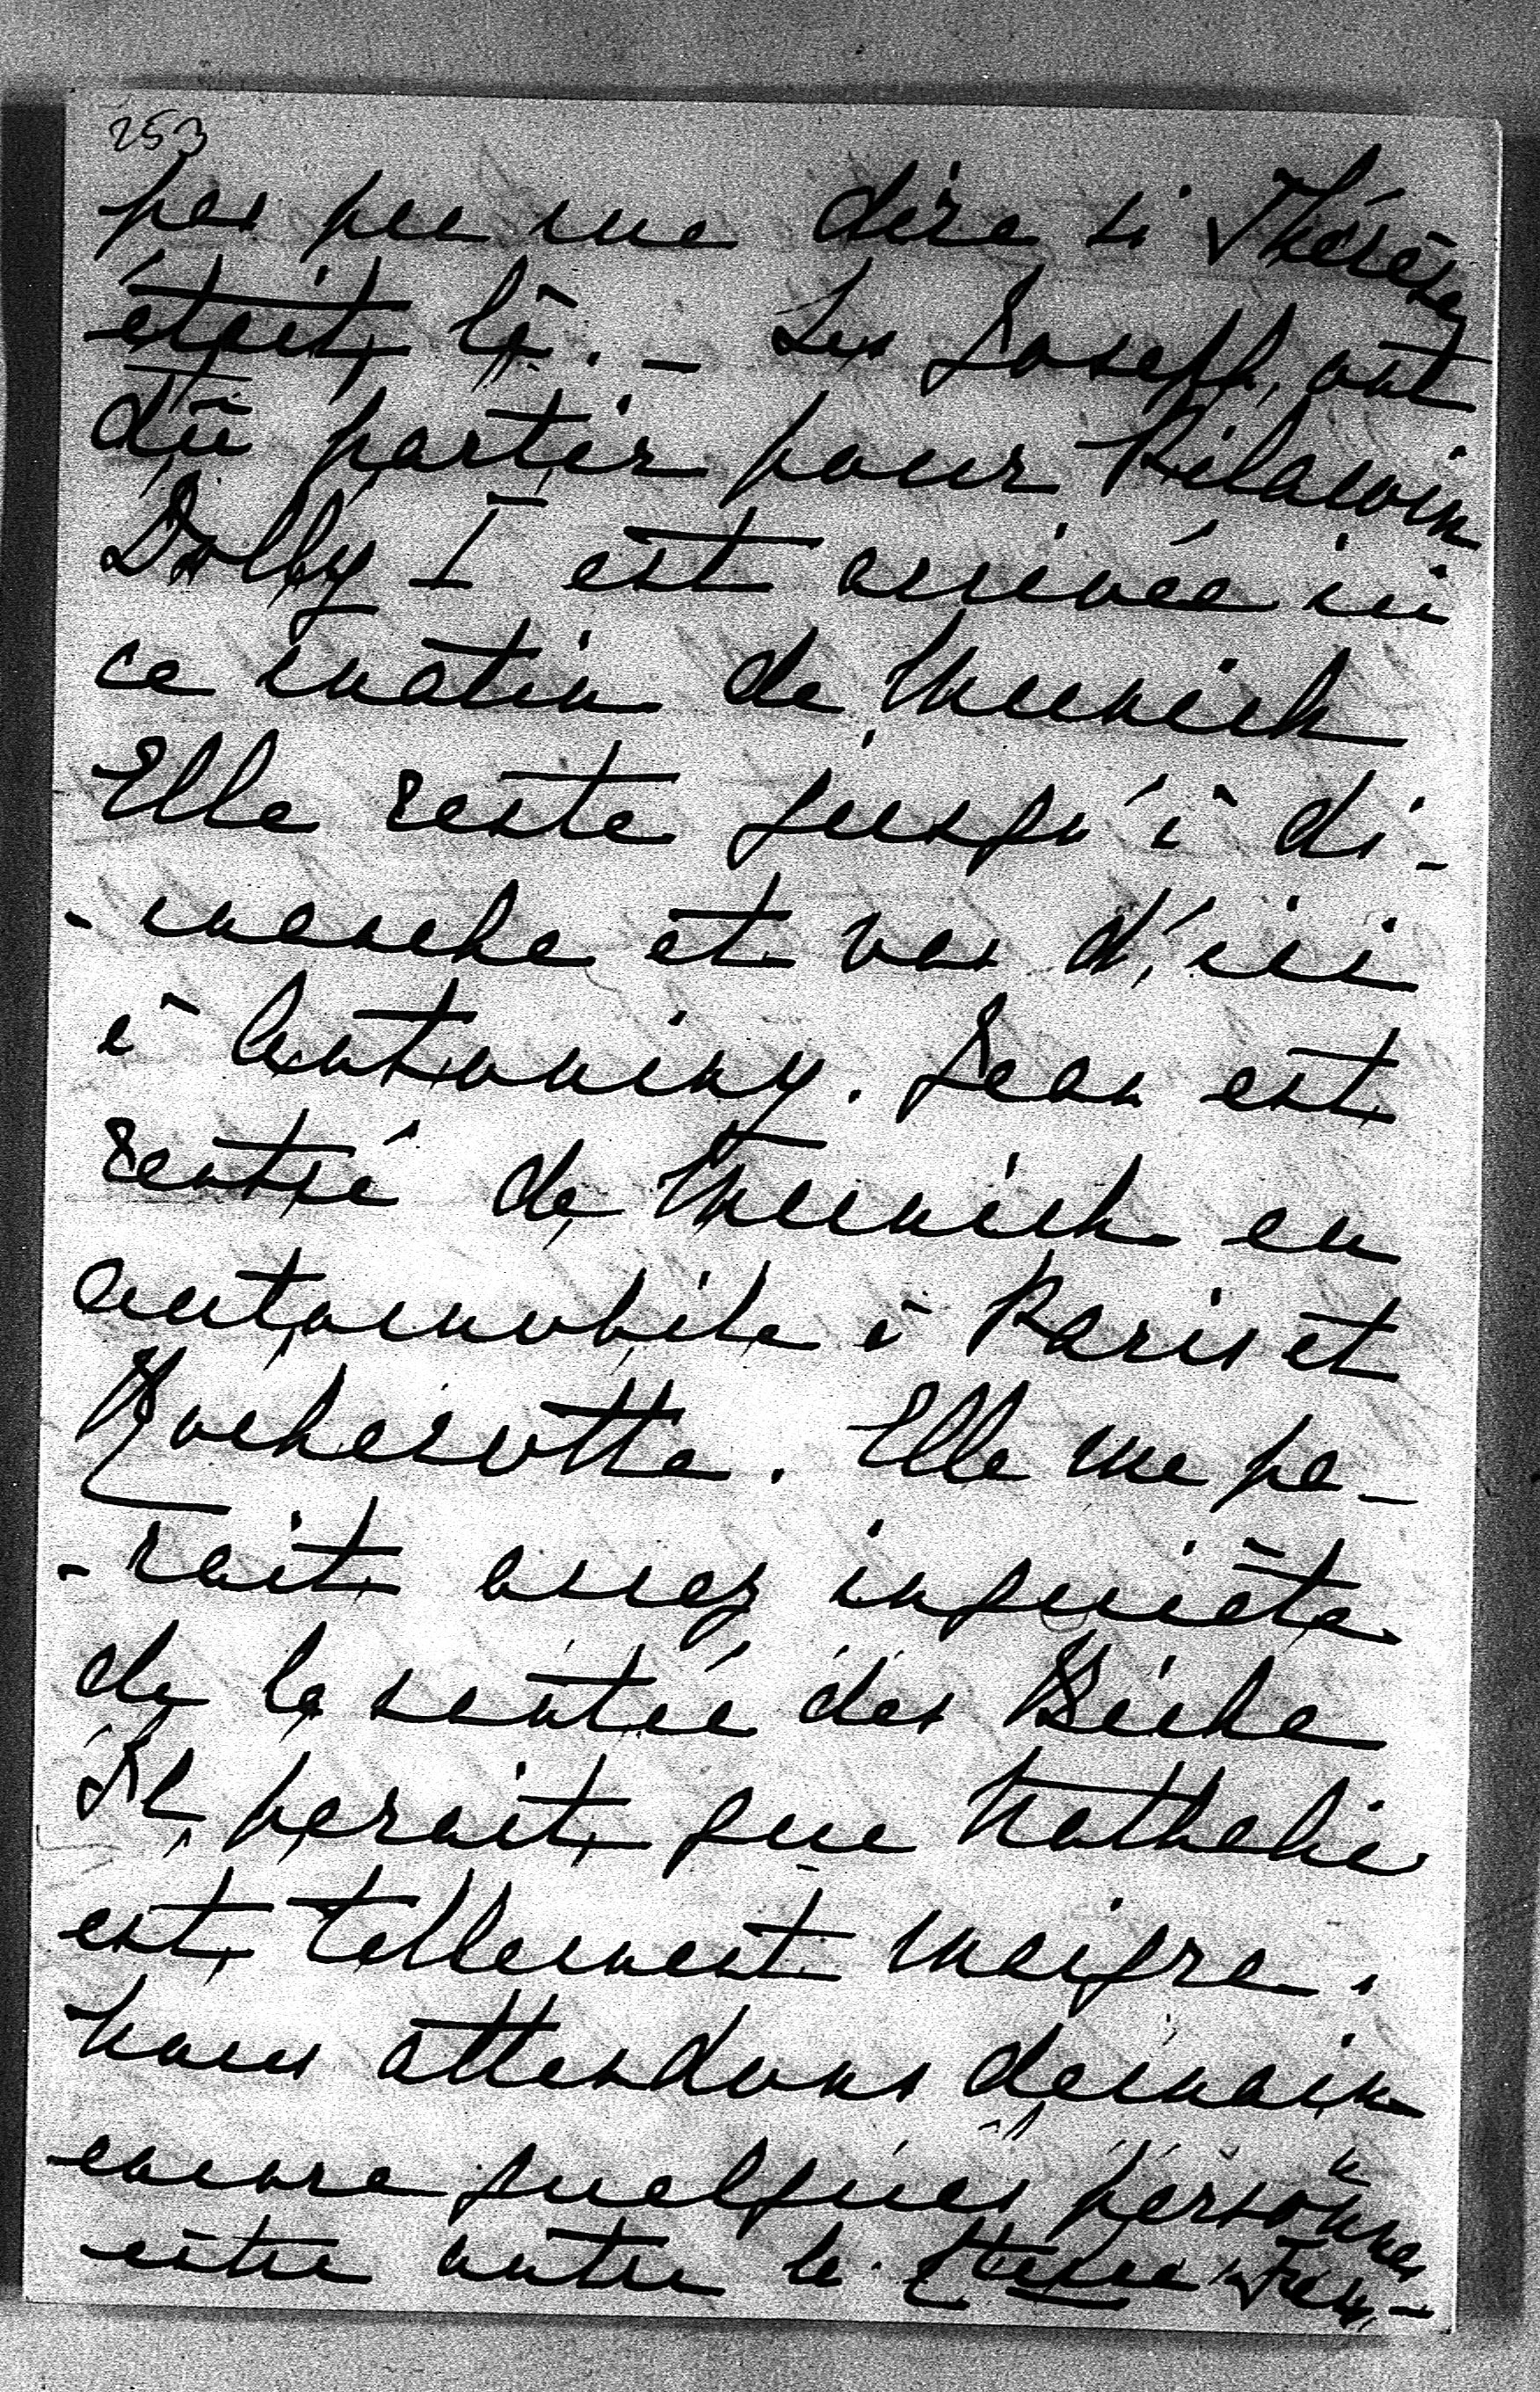 253
pas pu me dire si Thérèse
était là. - Les Joseph ont
dû partir pour Kilawin
Dolly I est arrivée ici
ce matin de Munich
Elle reste jusqu'à di-
-manche et va d'ici
à Antoniny. Jean est
rentré de Munich en
automobile à Paris et
Rochecotte. Elle me pa-
-rait assez inquiète
de la santé des Biche
Il parait que Nathalie
est tellement maigre.
Nous attendons demain
encore quelques personnes
entre autre le